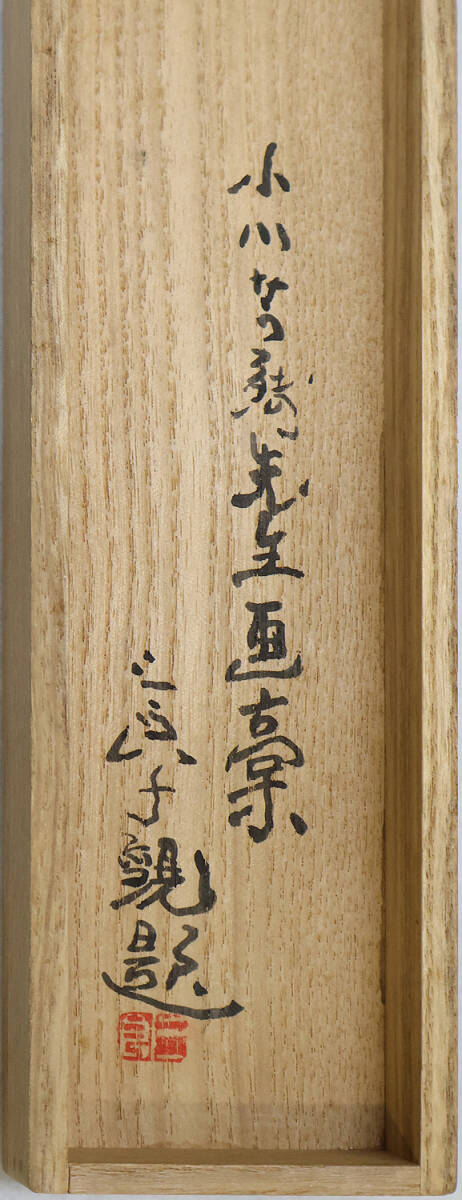 小川芋銭先生画稾
三良子観題